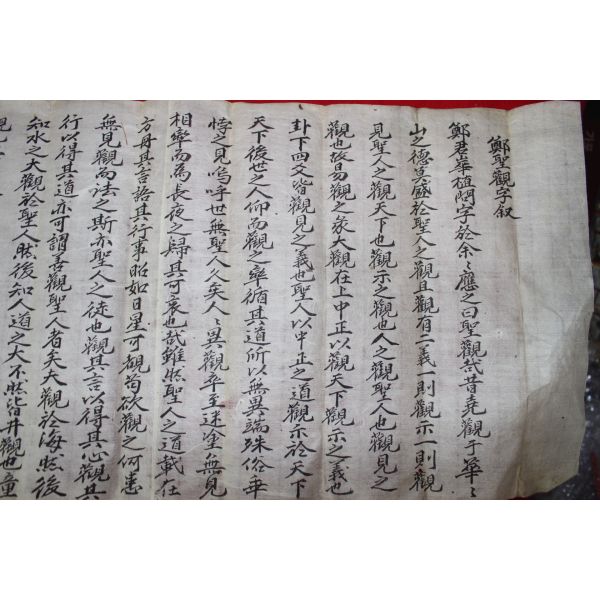 鄭聖觀字叙
鄭君峯植問字於余〻應之曰聖觀哉昔堯觀于華〻
山之德莫盛於聖人之觀且觀有二義一則觀示一則觀
見聖人之觀天下也觀示之觀也人之觀聖人也觀見之
觀也故易觀之彖大觀在上中正以觀天下觀示之義也
卦下四爻皆觀見之義也聖人以中正之道觀示於天下
天下後世之人仰而觀之率循其道所以無異端殊俗乖
悖之見嗚呼世無聖人久矣人〻異觀卒至迷塗無見
相率而為長夜之歸其可哀也哉雖然聖人之道載在
方冊其言語其行事昭如日星可覩苟欲觀之何患
無見觀而法之斯亦聖人之徒也觀其言以得其心觀其
行以得其道亦可謂善觀聖人者矣大觀於海然後
知水之大觀於聖人然後知人道之大不然皆井觀也童